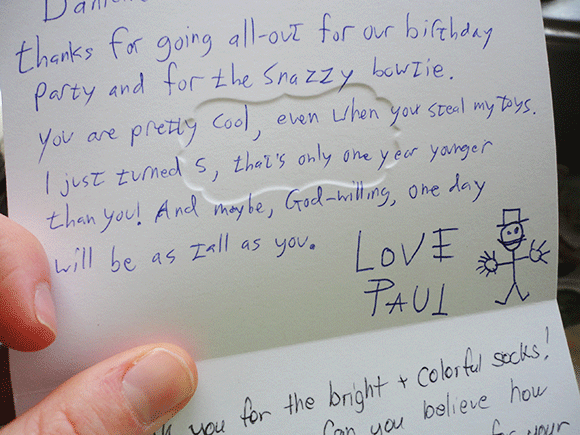 thanks for going all-out for our birthday
party and for the snazzy bowtie.
You are pretty cool, even when you steal my toys.
I just turned 5, that's only one year younger
than you! And maybe, God-willing, one day
will be as tall as you.
LOVE
PAUL
you for the bright + colorful socks!
Can you believe how
for your